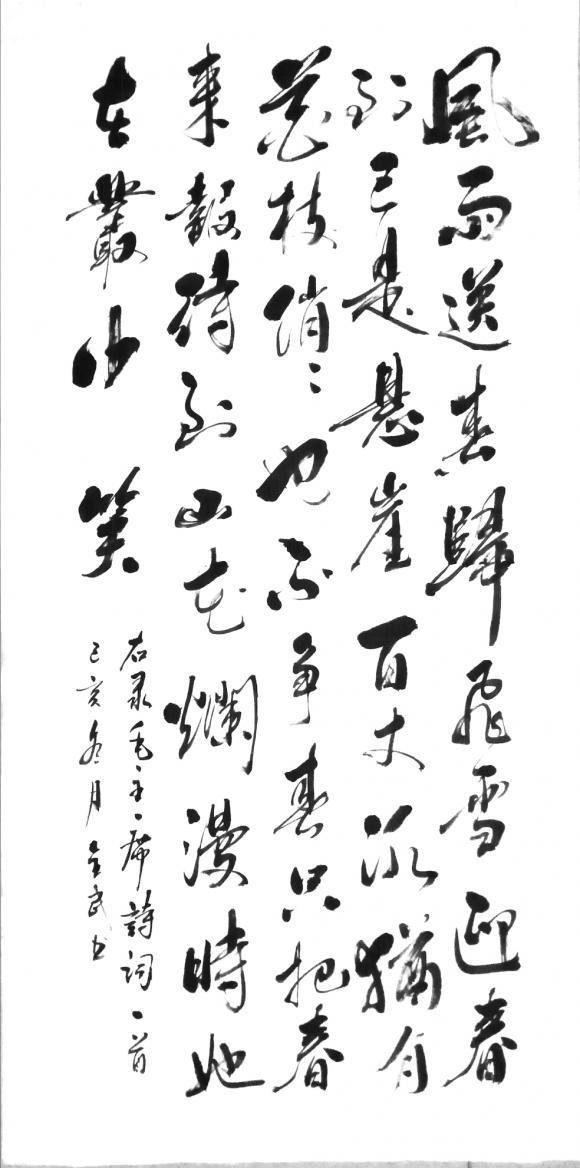 風雨送春歸飛雪迎春
到已是懸崖百丈冰猶有
花枝俏〻也不争春只把春
来報待到山花爛漫時她
在叢中笑
右录毛主席詩詞一首
己亥冬月武书